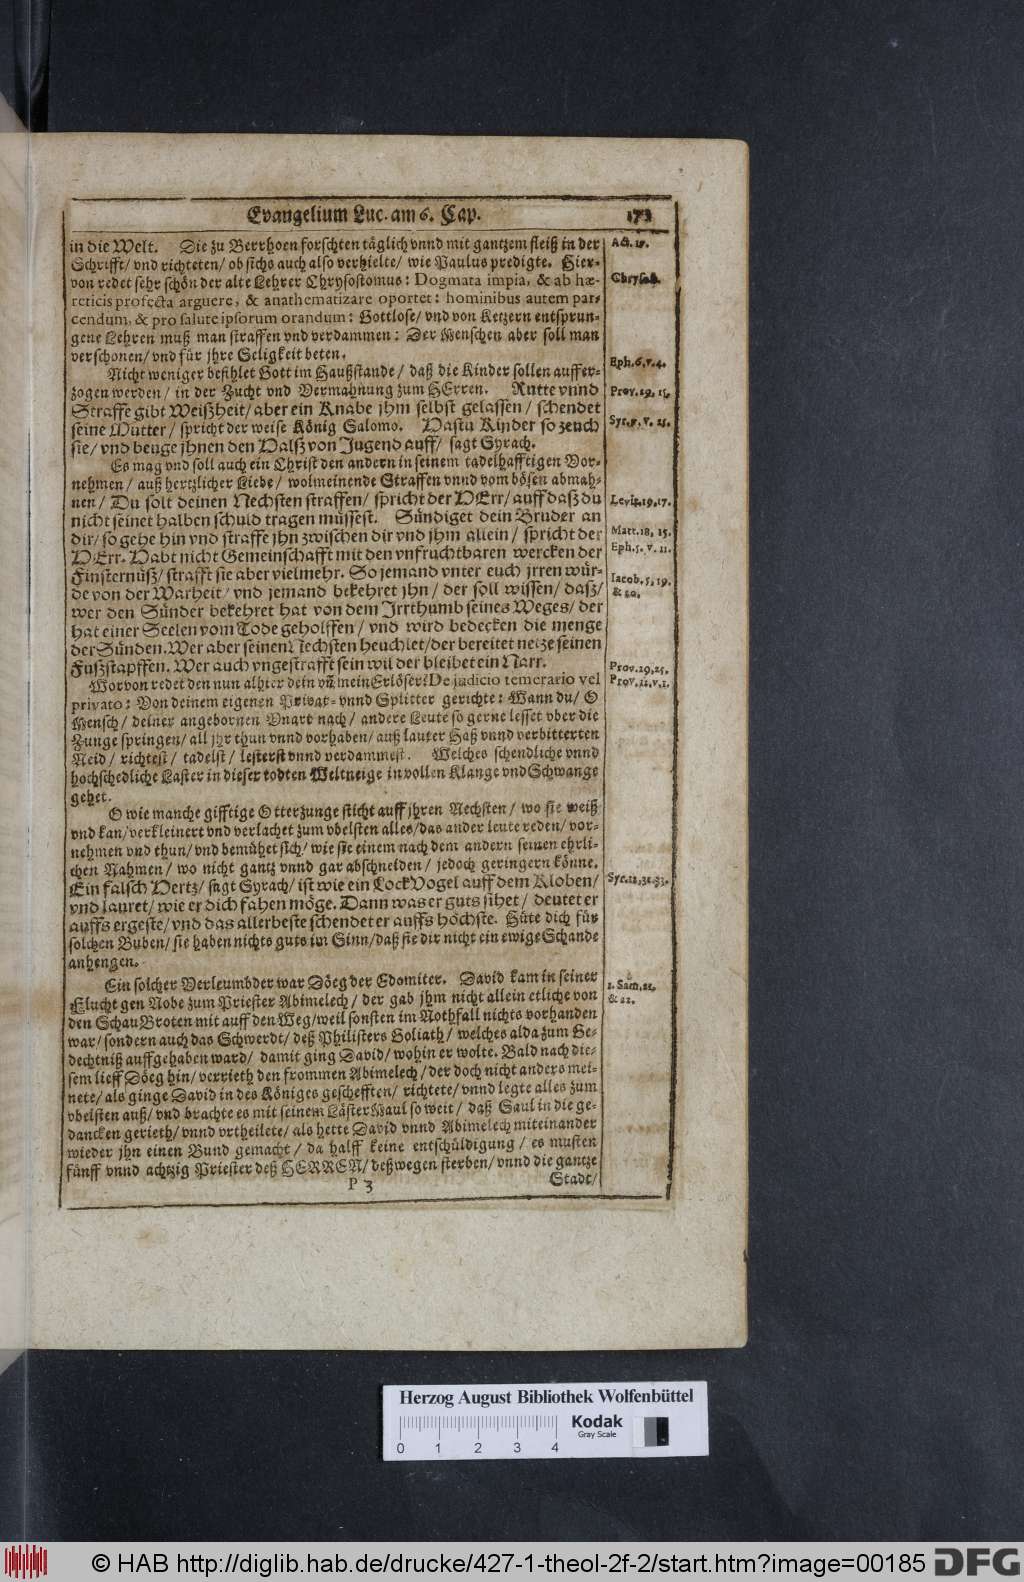 Evangelium Luc. am 6. Cap. 173
in die Welt. Die zu Berrhoen forschten täglich vnnd mit gantzem fleiß in der
Schrifft/ vnd richteten/ ob sichs auch also verhielte/ wie Paulus predigte. Hier-
von redet sehr schön der alte Lehrer Chrysostomus: Dogmata impia, & ab hæ-
reticis profecta arguere, & anathematizare oportet: hominibus autem par-
cendum, & pro salute ipsorum orandum: Gottlose/ vnd von Ketzern entsprun-
gene Lehren muß man straffen vnd verdammen: Der Menschen aber soll man
verschonen/ vnd für jhre Seligkeit beten.
Nicht weniger befihlet Gott im Haußstande/ daß die Kinder sollen auffer-
zogen werden/ in der Zucht vnd Vermahnung zum HErren. Rutte vnnd
Straffe gibt Weißheit/ aber ein Knabe jhm selbst gelassen/ schendet
seine Mutter/ spricht der weise König Salomo. Hastu Kinder so zeuch
sie/ vnd beuge jhnen den Halß von Jugend auff/ sagt Syrach.
Es mag vnd soll auch ein Christ den andern in seinem tadelhafftigen Vor-
nehmen/ auß hertzlicher Liebe/ wolmeinende Straffen vnnd vom bösen abmah-
nen/ Du solt deinen Nechsten straffen/ spricht der HErr/ auff daß du
nicht seinet halben schuld tragen müssest. Sündiget dein Bruder an
dir/ so gehe hin vnd straffe jhn zwischen dir vnd jhm allein/ spricht der
HErr. Habt nicht Gemeinschafft mit den vnfruchtbaren wercken der
Finsternüß/ strafft sie aber vielmehr. So jemand vnter euch jrren wür-
de von der Warheit/ vnd jemand bekehret jhn/ der soll wissen/ daß/
wer den Sünder bekehret hat von dem Jrrthumb seines Weges/ der
hat einer Seelen vom Tode geholffen/ vnd wird bedecken die menge
der Sünden. Wer aber seinen Nechsten heuchlet/ der bereitet netze seinen
Fußstapffen. Wer auch vngestrafft sein wil der bleibet ein Narr.
Worvon redet denn nun alhier dein vñ mein Erlöser? De judicio temerario vel
privato: Von deinem eigenen Privat- vnnd Splitter gerichte: Wann du/ O
Mensch/ deiner angebornen Vnart nach/ andere Leute so gerne lessest vber die
Zunge springen/ all jhr thun vnnd vorhaben/ auß lauter Haß vnnd verbitterten
Neid/ richtest/ tadelst/ lesterst vnnd verdammest. Welches schendliche vnnd
hochschedliche Laster in dieser todten Weltneige in vollen Klange vnd Schwange
gehet.
O wie manche gifftige Otterzunge sticht auff jhren Nechsten/ wo sie weiß
vnd kan/ verkleinert vnd verlachet zum vbelsten alles/ das ander leute reden/ vor-
nehmen vnd thun/ vnd bemühet sich/ wie sie einem nach dem andern seinen ehrli-
chen Nahmen/ wo nicht gantz vnnd gar abschneiden/ jedoch geringern könne.
Ein falsch Hertz/ sagt Syrach/ ist wie ein LockVogel auff dem Kloben/
vnd lauret/ wie er dich fahen möge. Dann was er guts sihet/ deutet er
auffs ergeste/ vnd das allerbeste schendet er auffs höchste. Hüte dich für
solchen Buben/ sie haben nichts guts im Sinn/ daß sie dir nicht ein ewige Schande
anhengen.
Ein solcher Verleumbder war Döeg der Edomiter. David kam in seiner
Flucht gen Nobe zum Priester Abimelech/ der gab jhm nicht allein etliche von
den SchauBroten mit auff den Weg/ weil sonsten im Nothfall nichts vorhanden
war/ sondern auch das Schwerdt/ deß Philisters Goliath/ welches alda zum Ge-
dechtniß auffgehaben ward/ damit ging David/ wohin er wolte. Bald nach die-
sem lieff Döeg hin/ verrieth den frommen Abimelech/ der doch nicht anders mei-
nete/ als ginge David in des Königes geschefften/ richtete/ vnnd legte alles zum
vbelsten auß/ vnd brachte es mit seinem LästerMaul so weit/ daß Saul in die ge-
dancken gerieth/ vnnd vrtheilete/ als hette David vnnd Abimelech miteinander
wieder jhn einen Bund gemacht/ da halff keine entschüldigung/ es musten
fünff vnnd achtzig Priester deß HERREN/ deßwegen sterben/ vnnd die gantze
P 3 Stadt/
Chrysost.
Eph. 6. v. 4.
Prov. 29, 15.
Levit. 19, 17.
Matt. 18, 15.
Eph. 5. v. 11.
Iacob. 5, 19.
& 20.
Prov. 29, 25.
Prov. 12. v. 1.
1. Sam. 21.
& 22.
Herzog August Bibliothek Wolfenbüttel
Kodak
Gray Scale
0 1 2 3 4
© HAB http://diglib.hab.de/drucke/427-1-theol-2f-2/start.htm?image=00185
DFG